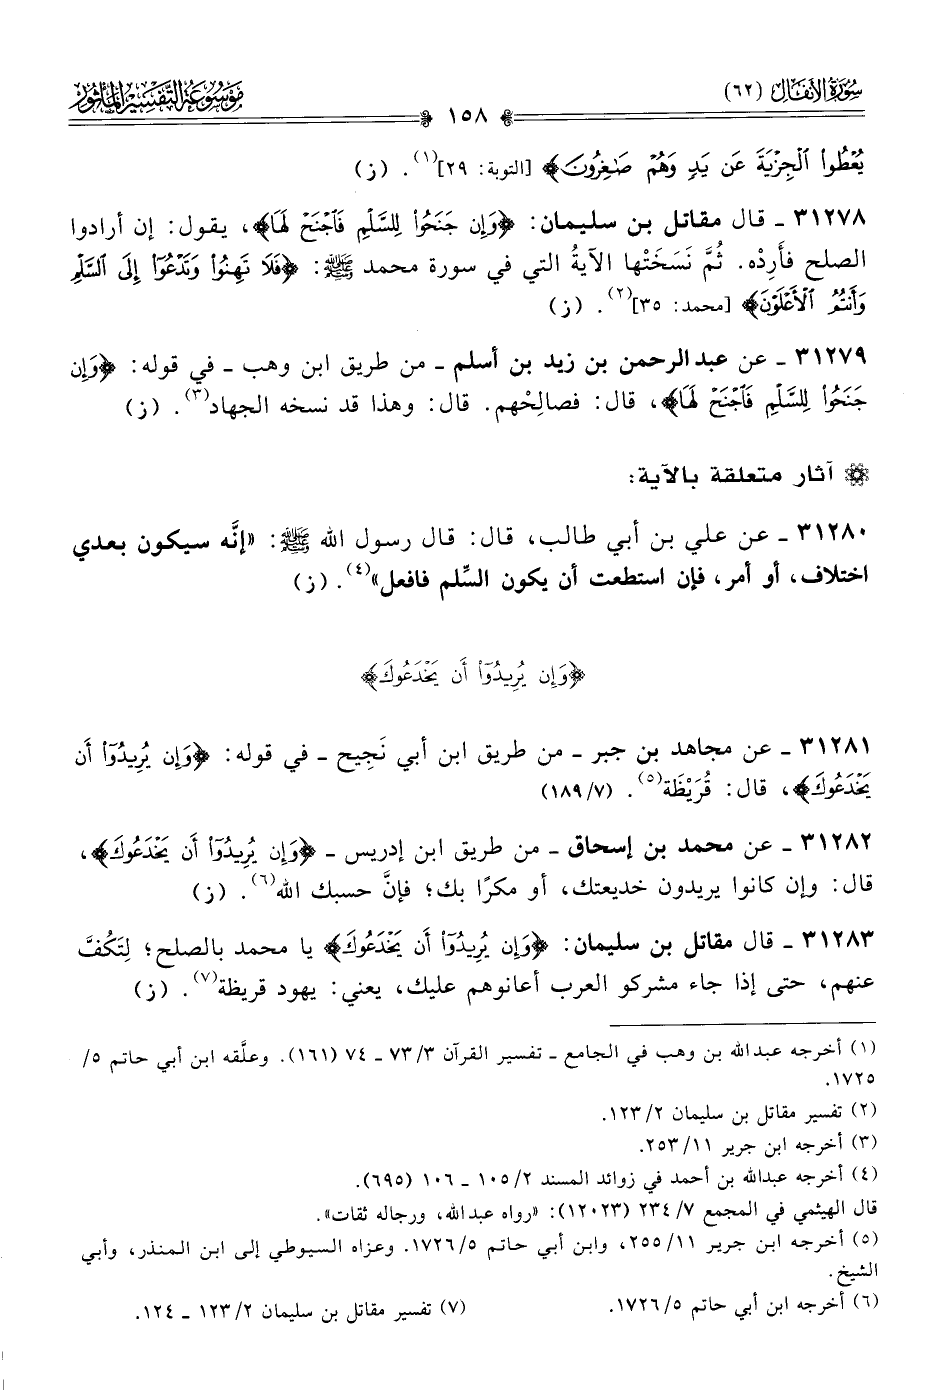 سُورَةُ الأنفَال (٦٢)
١٥٨
مَوْسُوعَة التَّفْسِير المَأثُور
يُعْطُوا۟ ٱلْجِزْيَةَ عَن يَدٍ وَهُمْ صَـٰغِرُونَ﴾ [التوبة: ٢٩](١). (ز)
٣١٢٧٨ ـ قال مقاتل بن سليمان: ﴿وَإِن جَنَحُوا۟ لِلسَّلْمِ فَٱجْنَحْ لَهَا﴾، يقول: إن أرادوا
الصلح فأَرِدْه. ثُمَّ نَسَخَتْها الآيةُ التي في سورة محمد ﷺ: ﴿فَلَا تَهِنُوا۟ وَتَدْعُوٓا۟ إِلَى ٱلسَّلْمِ
وَأَنتُمُ ٱلْأَعْلَوْنَ﴾ [محمد: ٣٥](٢). (ز)
٣١٢٧٩ ـ عن عبدالرحمن بن زيد بن أسلم ـ من طريق ابن وهب ـ في قوله: ﴿وَإِن
جَنَحُوا۟ لِلسَّلْمِ فَٱجْنَحْ لَهَا﴾، قال: فصالِحْهم. قال: وهذا قد نسخه الجهاد(٣). (ز)
آثار متعلقة بالآية:
٣١٢٨٠ ـ عن علي بن أبي طالب، قال: قال رسول الله ﷺ: «إنَّه سيكون بعدي
اختلاف، أو أمر، فإن استطعت أن يكون السِّلم فافعل»(٤). (ز)
﴿وَإِن يُرِيدُوٓا۟ أَن يَخْدَعُوكَ﴾
٣١٢٨١ ـ عن مجاهد بن جبر ـ من طريق ابن أبي نَجِيح ـ في قوله: ﴿وَإِن يُرِيدُوٓا۟ أَن
يَخْدَعُوكَ﴾، قال: قُرَيْظَة(٥). (٧/ ١٨٩)
٣١٢٨٢ ـ عن محمد بن إسحاق ـ من طريق ابن إدريس ـ ﴿وَإِن يُرِيدُوٓا۟ أَن يَخْدَعُوكَ﴾،
قال: وإن كانوا يريدون خديعتك، أو مكرًا بك؛ فإنَّ حسبك الله(٦). (ز)
٣١٢٨٣ ـ قال مقاتل بن سليمان: ﴿وَإِن يُرِيدُوٓا۟ أَن يَخْدَعُوكَ﴾ يا محمد بالصلح؛ لِتَكُفَّ
عنهم، حتى إذا جاء مشركو العرب أعانوهم عليك، يعني: يهود قريظة(٧). (ز)
(١) أخرجه عبدالله بن وهب في الجامع ـ تفسير القرآن ٣/ ٧٣ ـ ٧٤ (١٦١). وعلَّقه ابن أبي حاتم ٥/
١٧٢٥.
(٢) تفسير مقاتل بن سليمان ٢/ ١٢٣.
(٣) أخرجه ابن جرير ١١/ ٢٥٣.
(٤) أخرجه عبدالله بن أحمد في زوائد المسند ٢/ ١٠٥ ـ ١٠٦ (٦٩٥).
قال الهيثمي في المجمع ٧/ ٢٣٤ (١٢٠٢٣): «رواه عبدالله، ورجاله ثقات».
(٥) أخرجه ابن جرير ١١/ ٢٥٥، وابن أبي حاتم ٥/ ١٧٢٦. وعزاه السيوطي إلى ابن المنذر، وأبي
الشيخ.
(٦) أخرجه ابن أبي حاتم ٥/ ١٧٢٦.
(٧) تفسير مقاتل بن سليمان ٢/ ١٢٣ ـ ١٢٤.